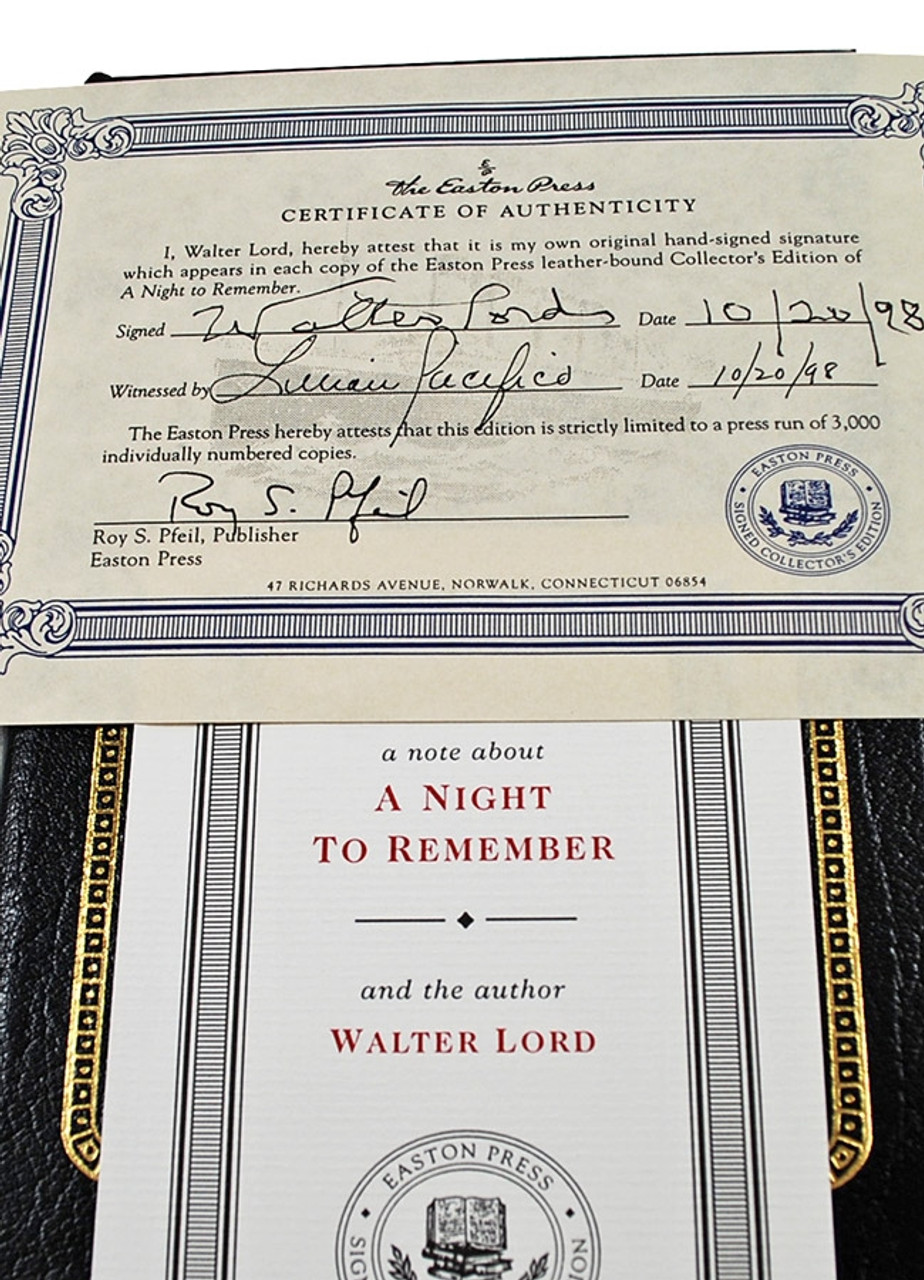 The Easton Press
CERTIFICATE OF AUTHENTICITY
I, Walter Lord, hereby attest that it is my own original hand-signed signature
which appears in each copy of the Easton Press leather-bound Collector's Edition of
A Night to Remember.
Signed Walter Lord Date 10/20/98
Witnessed by Lillian Pacifico Date 10/20/98
The Easton Press hereby attests that this edition is strictly limited to a press run of 3,000
individually numbered copies.
Roy S. Pfeil
Roy S. Pfeil, Publisher
Easton Press
EASTON PRESS
SIGNED COLLECTOR'S EDITION
47 RICHARDS AVENUE, NORWALK, CONNECTICUT 06854
a note about
A NIGHT
TO REMEMBER
and the author
WALTER LORD
EASTON PRESS